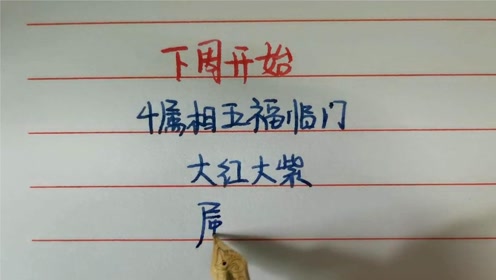 下周开始
4属相五福临门
大红大紫